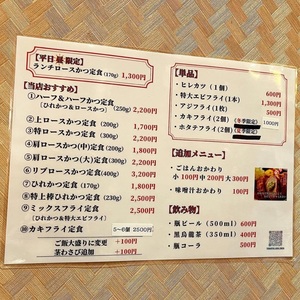 【平日昼限定】
ランチロースかつ定食(170g) 1,300円
【当店おすすめ】
①ハーフ&ハーフかつ定食
(ひれかつ&ロースかつ) (250g) 2,200円
②上ロースかつ定食 (200g) 1,700円
③特ロースかつ定食 (300g) 2,200円
④肩ロースかつ(中)定食 (200g) 1,800円
⑤肩ロースかつ(大)定食 (300g) 2,300円
⑥リブロースかつ定食 (300g) 2,400円
⑦ひれかつ定食 (170g) 1,800円
⑧特上棒ひれかつ定食 (250g) 2,500円
⑨ミックスフライ定食 2,500円
(ひれかつ&特大エビフライ)
⑩カキフライ定食 5〜6個 2500円
ご飯大盛りに変更 +100円
茶わさび追加 +100円
【単品】
・ヒレカツ (1枚) 600円
・特大エビフライ(1本) 1,300円
・アジフライ(1枚) 500円
・カキフライ(2個) (冬季限定) 1000円
・ホタテフライ(2個)
【追加メニュー】
・ごはんおかわり
小100円 中200円 大300円
・味噌汁おかわり
200円
【飲み物】
・瓶ビール (500ml) 600円
・黒烏龍茶 (350ml) 400円
・瓶コーラ 500円